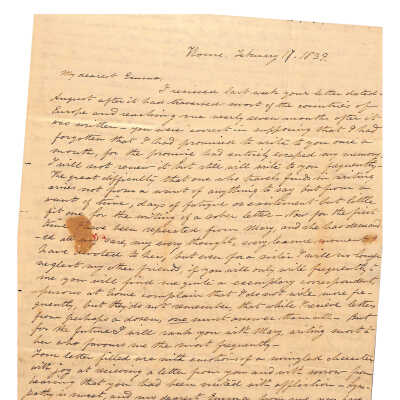 Rome, February 17, 1839.
My dearest Emma,
I received last week your letter dated
August after it had traversed most of the countries of
Europe and reaching me nearly seven months after it
was written - you were correct in supposing that I had
forgotten that I had promised to write to you once a
month, for the promise had entirely escaped my memory.
I will not renew it but will write to you frequently.
The great difficulty that one who travels finds in writing
arises not from a want of anything to say but from a
want of time, days of fatigue or excitement but little
fit one for the writing of a sober letter - Now for the first
time I have been separated from Mary, and she has demand-
ed all my care, my every thought, every leisure moment
I have devoted to her, but even for a sister I will no longer
neglect my other friends, if you will only write frequently to
me you will find me quite a exemplary correspondent
persons at home complain that I do not write more fre-
quently, but they do not remember that while I receive letters
from perhaps a dozen, one must answer them all - But
for the future I will rank you with Mary, writing most to
her who favours me the most frequently -
Your letter filled me with emotions of a mingled character
with joy at receiving a letter from you and with sorrow for
hearing that you had been visited with affliction - Sym-
pathy is sweet, and my dearest Emma